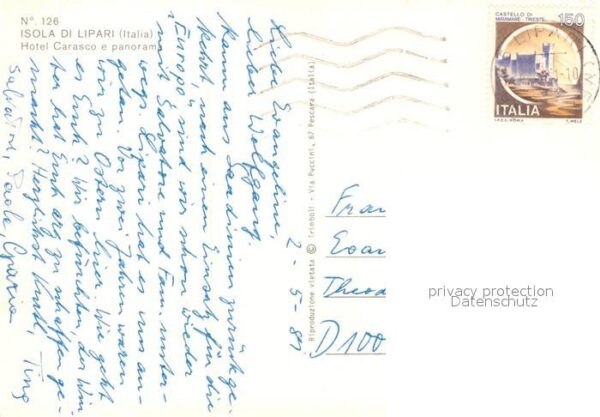 N°. 126
ISOLA DI LIPARI (Italia)
Hotel Carasco e panorama
CASTELLO DI
MIRAMARE - TRIESTE
150
ITALIA
I.P.Z.S. ROMA
LIPARI
Riproduzione vietata © Trimboli - Via Puccini, 67 Pescara (Italia)
2-5-87
Liebe Evangeline,
lieber Wolfgang.
Kaum aus Sardinien zurückge-
kehrt, nach einem Einsatz für die
"Europa", sind wir schon wieder
mit Salvatore und Fam. unter-
wegs. Lipari hat es uns an-
getan. Vor zwei Jahren waren
wir zu Ostern hier. Wie geht
es Euch? Wir befürchten, der Win-
ter hat Euch arg zu schaffen ge-
macht? Herzlichst
Salvatore, Paola, Grazia
Frau
Evan
Theod
D100
privacy protection
Datenschutz